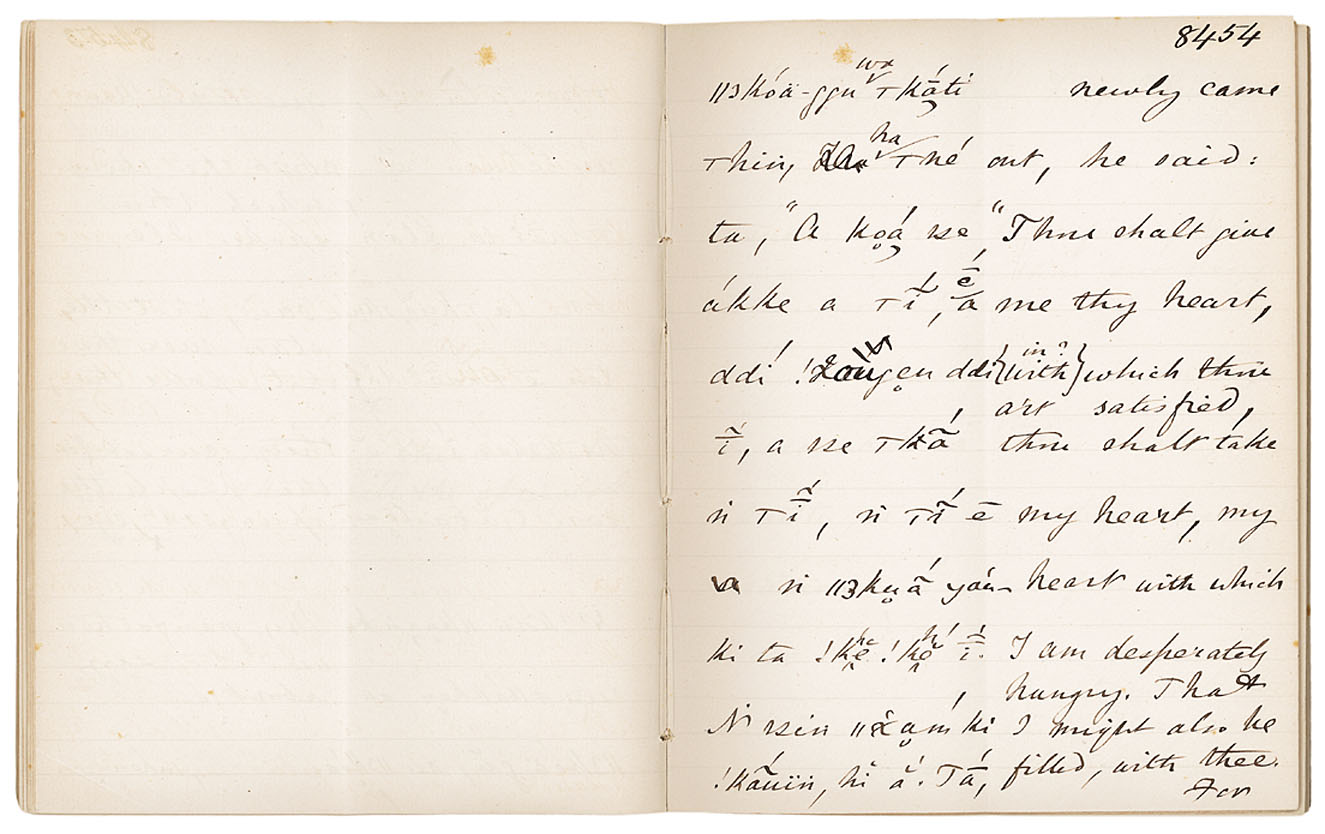 8454
wx
ǁ3kóä-ggu ⊤kā́ti newly came
ha
⊤hin, ⊤né out, he said:
ta, "A ko̤á sse "Thou shalt give
ákke a ⊤ĩ́, ā́ me thy heart,
é
in?
ddí ddi {with} which thou
art satisfied,
ĩ̄, a sse ⊤kã́ thou shalt take
ṅ ⊤ĩ́, ṅ ⊤ĩ́ ē my heart, my
ṅ ǁ3kṵã́ yáu- heart with which
he hé
ki ta !kē̃ !kē̃ ĩ́. I am desperately
hungry. That
Ṅ ssin ǁx̱a̤ḿ ki I might also be
!kã́uïn, hĭ ắ. Tā́, filled, with thee.
For